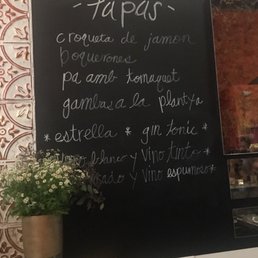 - Tapas -
croqueta de jamon
boquerones
pa amb tomaquet
gambas a la plantxa
* estrella * gin tonic *
blanco y vino tinto
rosado y vino espumoso